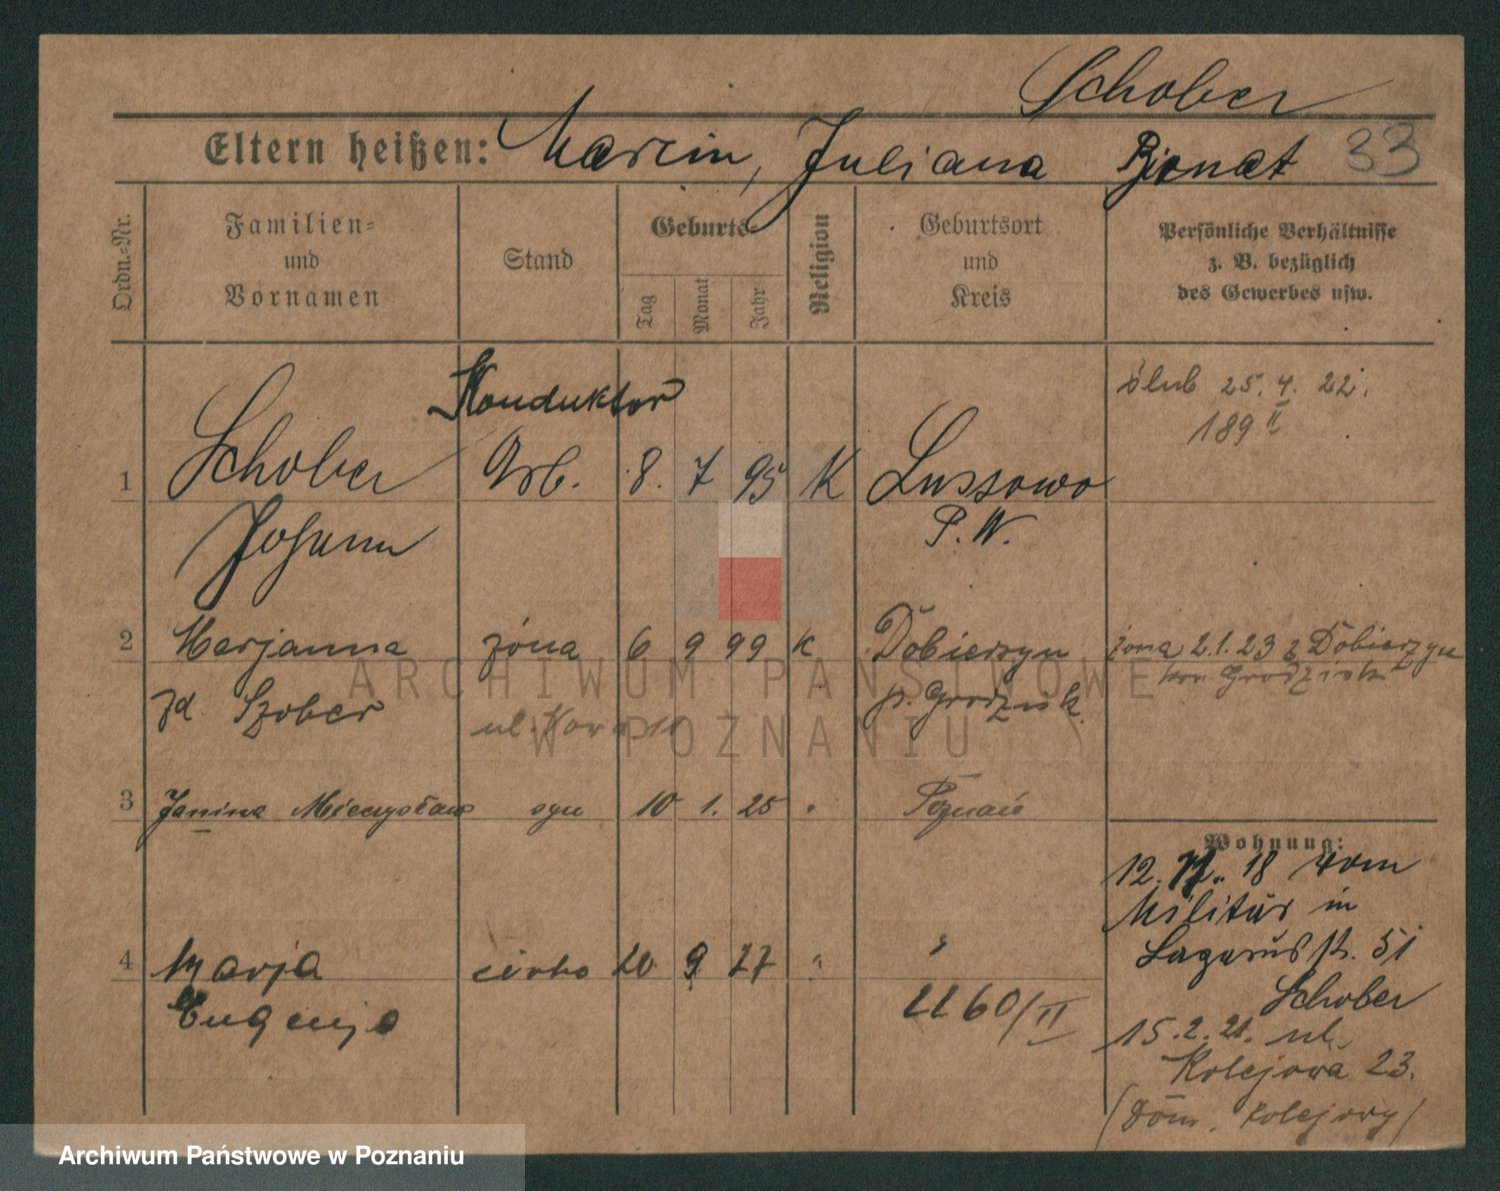 Schober
Eltern heißen: Marcin, Juliana Bjonat 33
Ordn.-Nr.
Familien-
und
Vornamen
Stand
Geburts-
Tag
Monat
Jahr
Religion
Geburtsort
und
Kreis
Persönliche Verhältnisse
z. B. bezüglich
des Gewerbes usw.
Konduktor
ślub 25.4.22.
189 II
1 Schober Arb. 8. 7 95 K Lussowo
Johann P.W.
2 Marjanna żona 6 9 99 K Dobierzyn żona 2.1.23 z Dobierzyn
Grodzisk
zd. Szober p. Grodzisk
ul.
3 Janina Mieczysław syn 10 1. 25 " Poznań
Wohnung:
12. 12. 18 vom
Militär in
4 Marja córka 20 9 27 " "
Lazarusstr. 51
Eugenja
Schober
2260/II
15.2.21. ul.
Kolejowa 23.
(Dom. Kolejowy)
ARCHIWUM PAŃSTWOWE
W POZNANIU
Archiwum Państwowe w Poznaniu